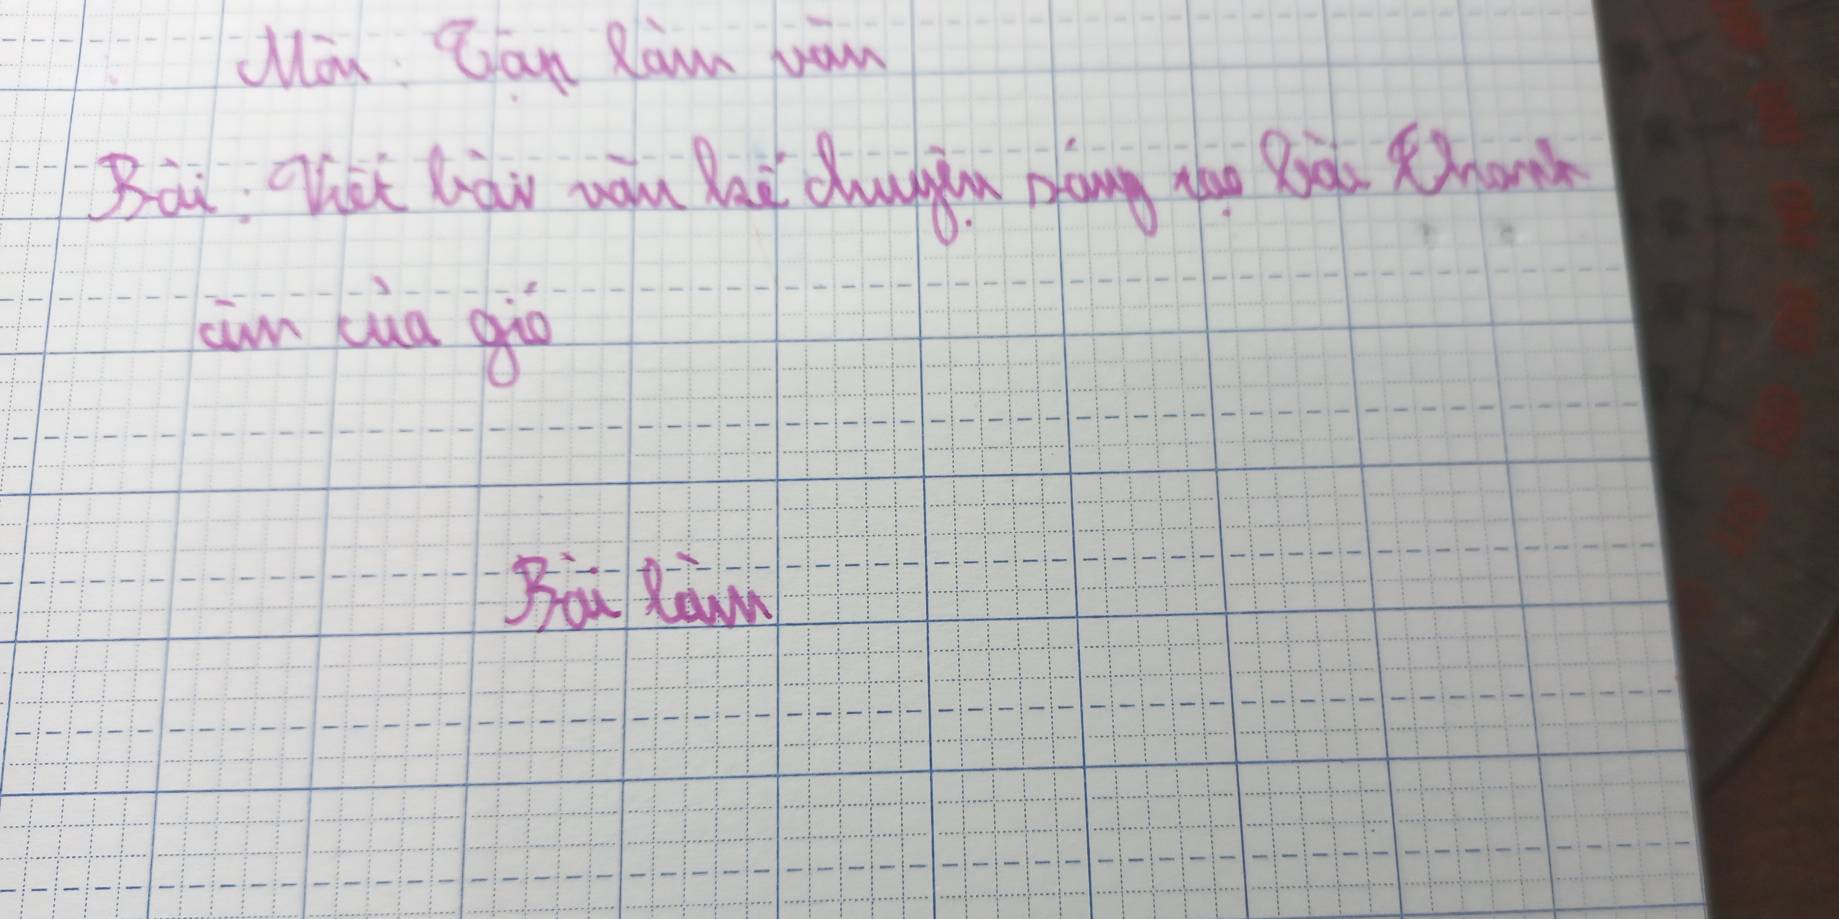 Môn: Tập làm văn
Bài: Viết bài văn kể chuyện sáng tạo bài Thanh
âm của gió
Bài làm